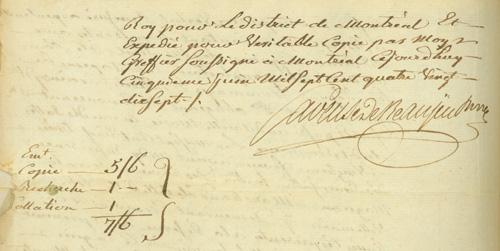 Roy pour Le district de Montréal Et
Expedié pour Veritable Copie par Moy
Greffier Soussigné à Montréal Cejourdhuy
Cinquieme juin Mil Sept Cent quatre Vingt
dixsept ./.
Delisle de Beaujeu
Emt.
Copie — 5/6
Recherche — 1 --
Collation — 1
7/6